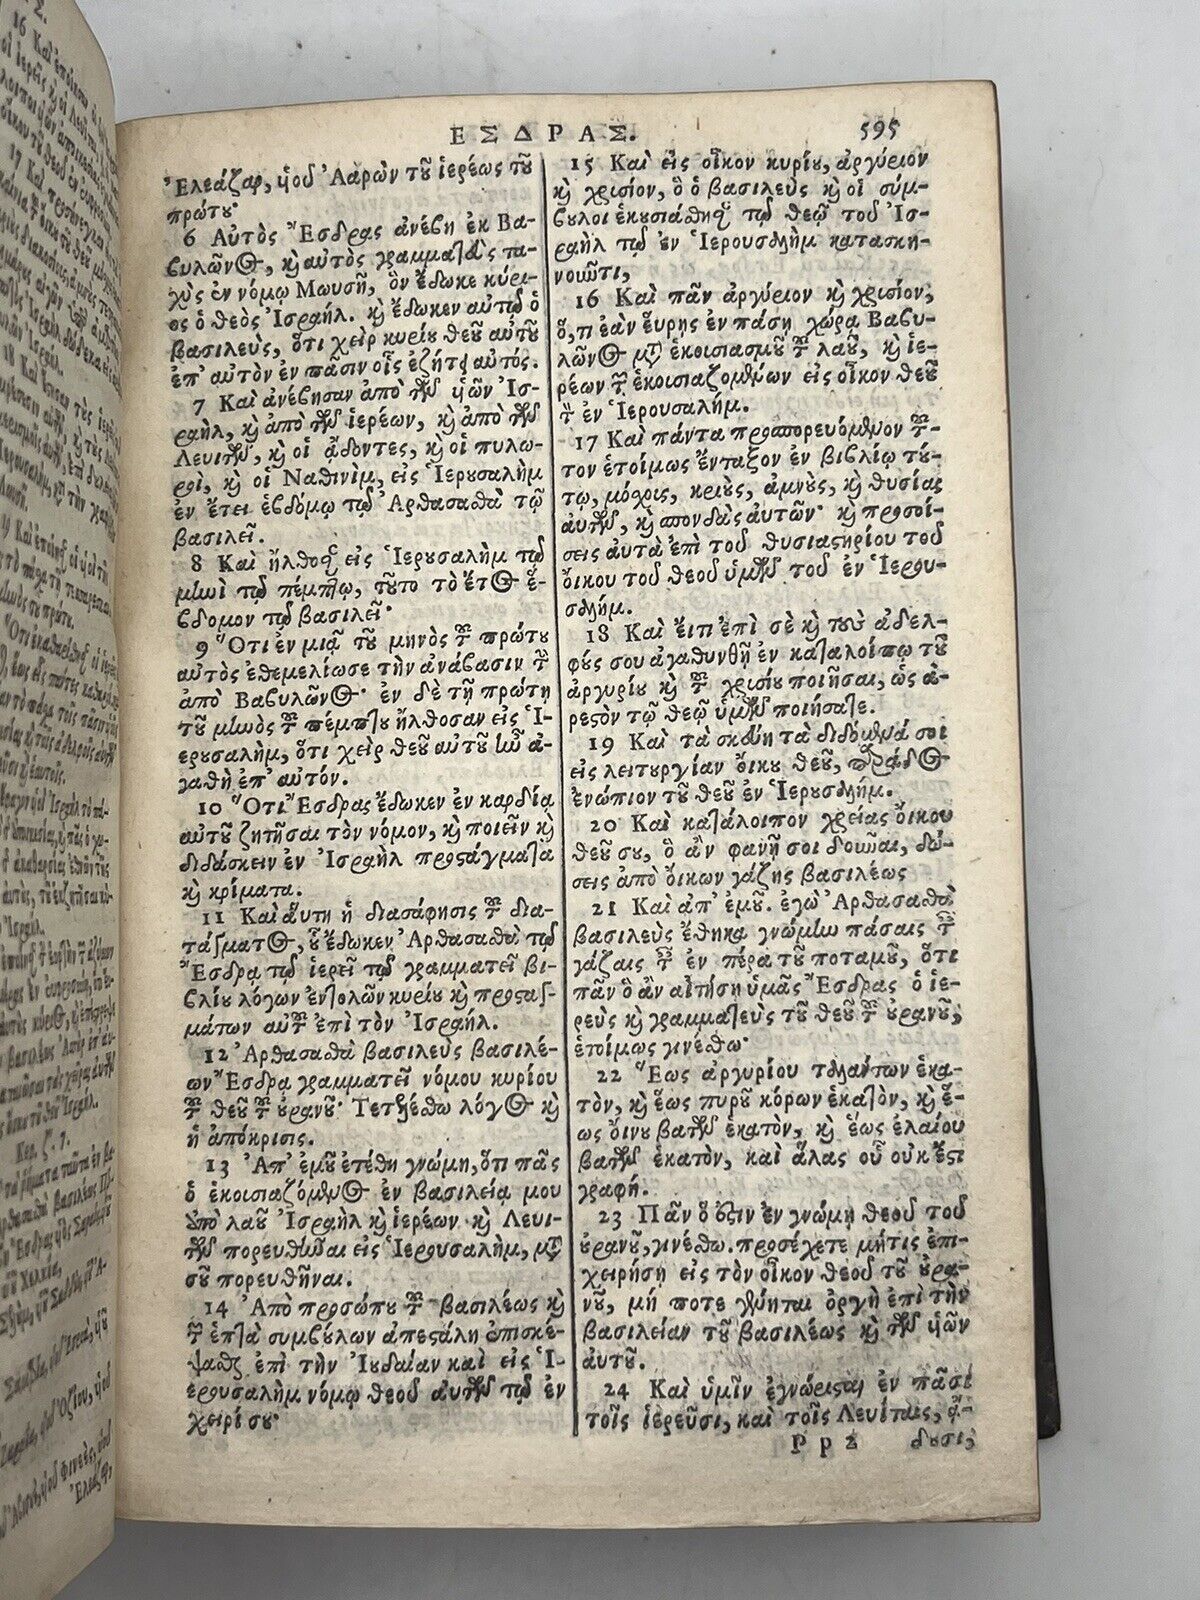 ΕΣΔΡΑΣ. 595
Ἐλεάζαρ, ὑοῦ Ἀαρὼν τοῦ ἱερέως τοῦ
πρώτου·
6 Αὐτὸς Ἔσδρας ἀνέβη ἐκ Βα-
βυλῶνος, καὶ αὐτὸς γραμματεὺς τα-
χὺς ἐν νόμῳ Μωυσῆ, ὃν ἔδωκε κύρι-
ος ὁ θεὸς Ἰσραήλ. καὶ ἔδωκεν αὐτῷ ὁ
βασιλεὺς, ὅτι χεὶρ κυρίου θεοῦ αὐτοῦ
ἐπ' αὐτὸν ἐν πᾶσιν οἷς ἐζήτει αὐτός.
7 Καὶ ἀνέβησαν ἀπὸ τῶν ὑῶν Ἰσ-
ραὴλ, καὶ ἀπὸ τῶν ἱερέων, καὶ ἀπὸ τῶν
Λευιτῶν, καὶ οἱ ᾄδοντες, καὶ οἱ πυλω-
ροὶ, καὶ οἱ Ναθινὶμ, εἰς Ἱερουσαλὴμ
ἐν ἔτει ἑβδόμῳ τῷ Ἀρθασαθὰ τῷ
βασιλεῖ.
8 Καὶ ἤλθοσαν εἰς Ἱερουσαλὴμ τῷ
μηνὶ τῷ πέμπτῳ, τοῦτο τὸ ἔτος ἕ-
βδομον τῷ βασιλεῖ·
9 Ὅτι ἐν μιᾷ τοῦ μηνὸς τοῦ πρώτου
αὐτὸς ἐθεμελίωσε τὴν ἀνάβασιν τὴν
ἀπὸ Βαβυλῶνος· ἐν δὲ τῇ πρώτῃ
τοῦ μηνὸς τοῦ πέμπτου ἤλθοσαν εἰς Ἱ-
ερουσαλὴμ, ὅτι χεὶρ θεοῦ αὐτοῦ ἦν ἀ-
γαθὴ ἐπ' αὐτόν.
10 Ὅτι Ἔσδρας ἔδωκεν ἐν καρδίᾳ
αὐτοῦ ζητῆσαι τὸν νόμον, καὶ ποιεῖν καὶ
διδάσκειν ἐν Ἰσραὴλ προστάγματα
καὶ κρίματα.
11 Καὶ αὕτη ἡ διασάφησις τοῦ δια-
τάγματος, οὗ ἔδωκεν Ἀρθασαθὰ τῷ
Ἔσδρᾳ τῷ ἱερεῖ τῷ γραμματεῖ βι-
βλίου λόγων ἐντολῶν κυρίου καὶ προσταγ-
μάτων αὐτοῦ ἐπὶ τὸν Ἰσραήλ.
12 Ἀρθασαθὰ βασιλεὺς βασιλέ-
ων Ἔσδρᾳ γραμματεῖ νόμου κυρίου
τοῦ θεοῦ τοῦ οὐρανοῦ· Τετελέσθω λόγος καὶ
ἡ ἀπόκρισις.
13 Ἀπ' ἐμοῦ ἐτέθη γνώμη, ὅτι πᾶς
ὁ ἑκουσιαζόμενος ἐν βασιλείᾳ μου
ἀπὸ λαοῦ Ἰσραὴλ καὶ ἱερέων καὶ Λευι-
τῶν πορευθῆναι εἰς Ἱερουσαλὴμ, μετὰ
σοῦ πορευθῆναι.
14 Ἀπὸ προσώπου τοῦ βασιλέως καὶ
τῶν ἑπτὰ συμβούλων ἀπεστάλη ἐπισκέ-
ψασθαι ἐπὶ τὴν Ἰουδαίαν καὶ εἰς Ἱ-
ερουσαλὴμ νόμῳ θεοῦ αὐτῶν τῷ ἐν
χειρί σου·
15 Καὶ εἰς οἶκον κυρίου, ἀργύριον
καὶ χρυσίον, ὃ ὁ βασιλεὺς καὶ οἱ σύμ-
βουλοι ἑκουσιάθησαν τῷ θεῷ τοῦ Ἰσ-
ραὴλ τῷ ἐν Ἱερουσαλὴμ κατασκη-
νοῦντι,
16 Καὶ πᾶν ἀργύριον καὶ χρυσίον,
ὅ,τι ἐὰν εὕρῃς ἐν πάσῃ χώρᾳ Βαβυ-
λῶνος μετὰ ἑκουσιασμοῦ τοῦ λαοῦ, καὶ ἱε-
ρέων τῶν ἑκουσιαζομένων εἰς οἶκον θεοῦ
τὸν ἐν Ἱερουσαλήμ.
17 Καὶ πάντα προσπορευόμενον τοῦ-
τον ἑτοίμως ἔνταξον ἐν βιβλίῳ τού-
τῳ, μόσχους, κριοὺς, ἀμνοὺς, καὶ θυσίας
αὐτῶν, καὶ σπονδὰς αὐτῶν· καὶ προσοί-
σεις αὐτὰ ἐπὶ τοῦ θυσιαστηρίου τοῦ
οἴκου τοῦ θεοῦ ὑμῶν τοῦ ἐν Ἱερου-
σαλήμ.
18 Καὶ εἴ τι ἐπὶ σὲ καὶ τοὺς ἀδελ-
φούς σου ἀγαθυνθῇ ἐν καταλοίπῳ τοῦ
ἀργυρίου καὶ τοῦ χρυσίου ποιῆσαι, ὡς ἀ-
ρεστὸν τῷ θεῷ ὑμῶν ποιήσατε.
19 Καὶ τὰ σκεύη τὰ διδόμενά σοι
εἰς λειτουργίαν οἴκου θεοῦ, παράδος
ἐνώπιον τοῦ θεοῦ ἐν Ἱερουσαλήμ.
20 Καὶ κατάλοιπον χρείας οἴκου
θεοῦ σου, ὃ ἂν φανῇ σοι δοῦναι, δώ-
σεις ἀπὸ οἴκων γάζης βασιλέως
21 Καὶ ἀπ' ἐμοῦ. ἐγὼ Ἀρθασαθὰ
βασιλεὺς ἔθηκα γνώμην πάσαις ταῖς
γάζαις ταῖς ἐν πέρα τοῦ ποταμοῦ, ὅτι
πᾶν ὃ ἂν αἰτήσῃ ὑμᾶς Ἔσδρας ὁ ἱε-
ρεὺς καὶ γραμματεὺς τοῦ θεοῦ τοῦ οὐρανοῦ,
ἑτοίμως γινέσθω·
22 Ἕως ἀργυρίου ταλάντων ἑκα-
τὸν, καὶ ἕως πυροῦ κόρων ἑκατὸν, καὶ ἕ-
ως οἴνου βατῶν ἑκατὸν, καὶ ἕως ἐλαίου
βατῶν ἑκατὸν, καὶ ἅλας οὗ οὐκ ἔστι
γραφή.
23 Πᾶν ὅ ἐστιν ἐν γνώμῃ θεοῦ τοῦ
οὐρανοῦ, γινέσθω. προσέχετε μήτις ἐπι-
χειρήσῃ εἰς τὸν οἶκον θεοῦ τοῦ οὐρα-
νοῦ, μή ποτε γένηται ὀργὴ ἐπὶ τὴν
βασιλείαν τοῦ βασιλέως καὶ τῶν ὑῶν
αὐτοῦ.
24 Καὶ ὑμῖν ἐγνώρισται ἐν πᾶσι
τοῖς ἱερεῦσι, καὶ τοῖς Λευίταις, ᾄ-
Ρρ2 δουσι,